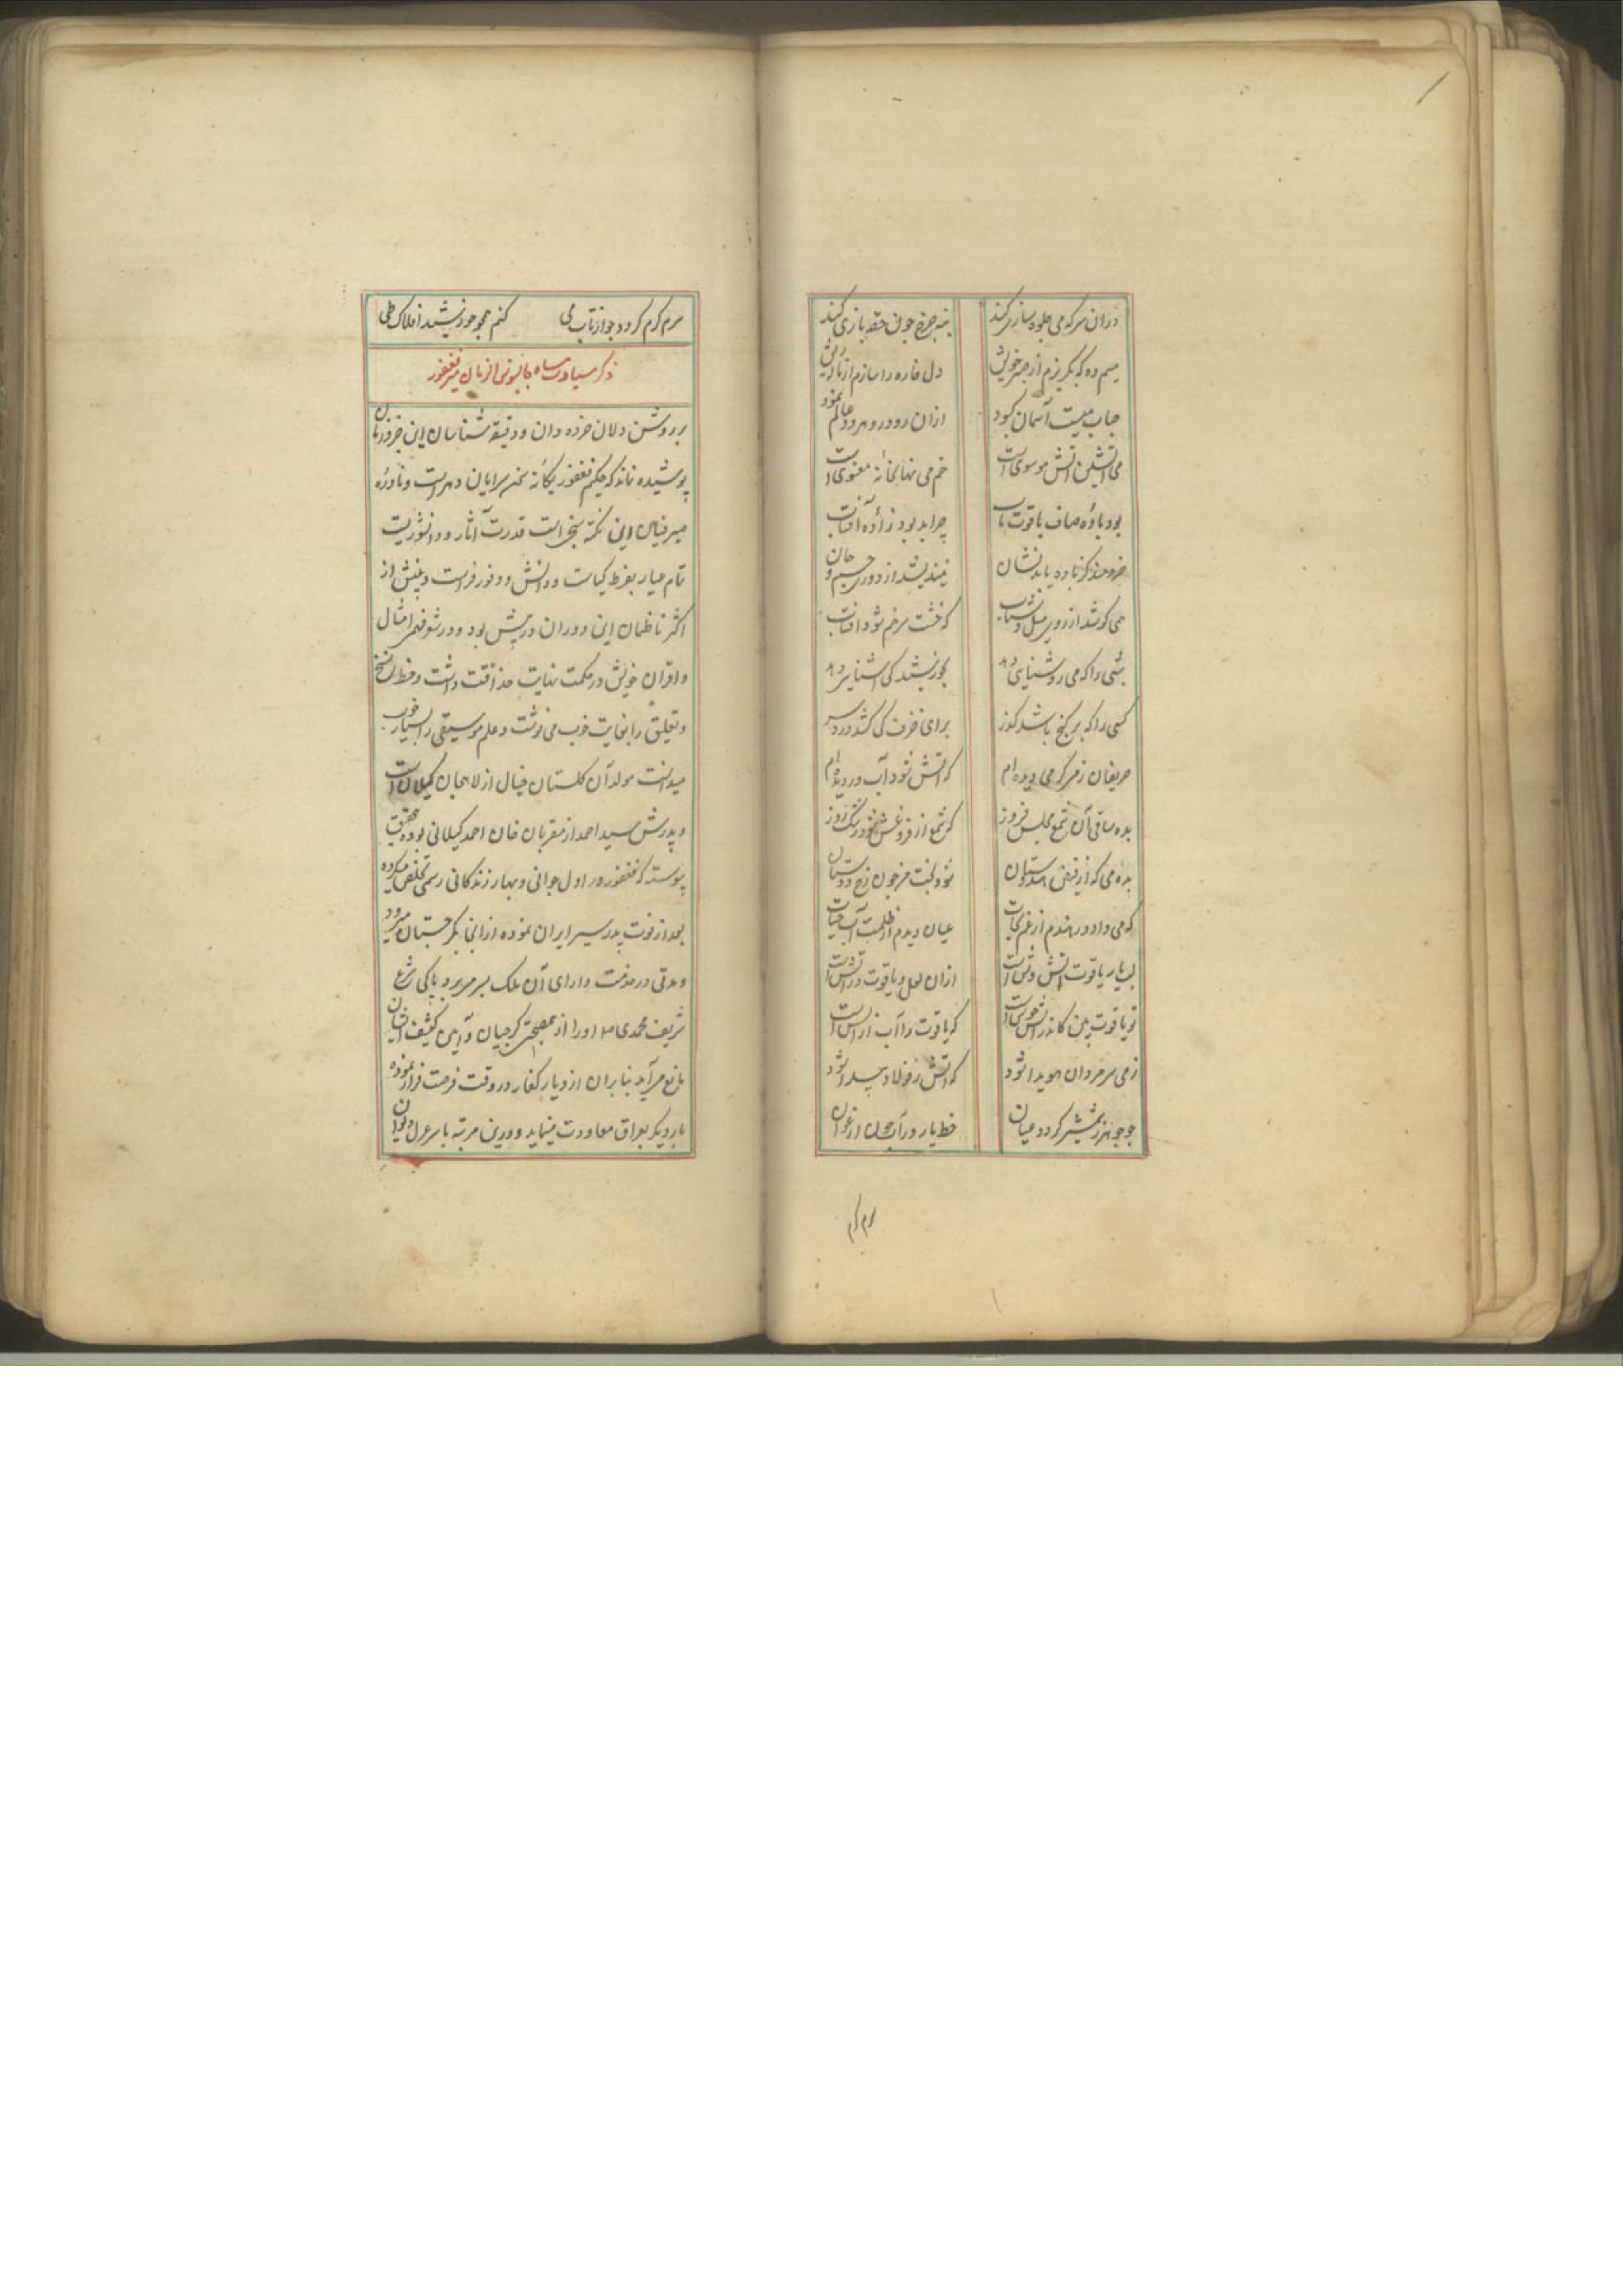 دران سر که می جلوه سازی کند بنه چرخ چون حقه بازی کند
میم ده که بگریزم از جبر خویش دل خاره را سازم از ناله ریش
حباب میست آسمان کبود ازان رو درو هر دو عالم نمود
می آتشین آتش موسوی است خم می نهانخانه معنوی است
بود باده صاف یاقوت ناب چرا بد بود زاده آفتاب
خردمند کز باده یابد نشان نیندیشد از دوری جسم و جان
که خشت سر خم شود آفتاب
شبی را که می روشنایی دهد بخورشید کی آشنایی دهد
کسی را که بر گنج باشد گذر برای خزف کی کشد درد سر
حریفان ز هر کر می دیده ام که آتش شود آب در دیده ام
بده ساقی آن شمع مجلس فروز که شمع از فروغش شود رنگ روز
بده می که از فیض
که می داد در هندم از غم نجات عیان دیدم از ظلمت آب حیات
لب یار یاقوت آتش وش است ازان لعل و یاقوت در آتش است
تو یاقوت بین کاندر آتش خوش است که یاقوت را آب از آتش است
ز می سر مردان هویدا شود که آتش ز فولاد پیدا شود
چو جوهر ز شمشیر گردد عیان خط یار در آب چون ارغوان
سرم گرم
سرم گرم گردد چو از تاب می کنم همچو خورشید افلاک طی
ذکر سیادت پناه جالینوس الزمان میر فغفور
بر روشن دلان خرده دان و دقیقه شناسان این جزو زمان
پوشیده نماند که حکیم فغفور یگانه سخن سرایان دهر است و نادره
میر فیاض این نکته سنجی است قدرت آثار و دانشوریست
تمام عیار بفرط کیاست و دانش و وفور فراست و بینش از
اکثر ناظمان این دوران در پیش بود و در شعر فهمی امثال
و اقران خویش در حکمت نهایت حذاقت داشت و خط نسخ
و تعلیق را بغایت خوب می نوشت و علم موسیقی را بسیار خوب
میدانست مولد آن گلستان خیال از لاهجان گیلان است
و پدرش سید احمد از مقربان خان احمد گیلانی بوده بتحقیق
پیوسته که فغفور در اول جوانی و بهار زندگانی رسمی تخلص میکرده
بعد از فوت پدر سیر ایران نموده ازانجا بگرجستان میرود
و مدتی در خدمت دارای آن ملک بسر میبرد پاکی شرع
شریف محمدی او را از مصحبتی گرجیان و آیین کثیف ایشان
مانع میآید بنابران از دیار کفار در وقت فرصت فرار نموده
بار دیگر بعراق معاودت مینماید و درین مرتبه با سر غزل و دیوان